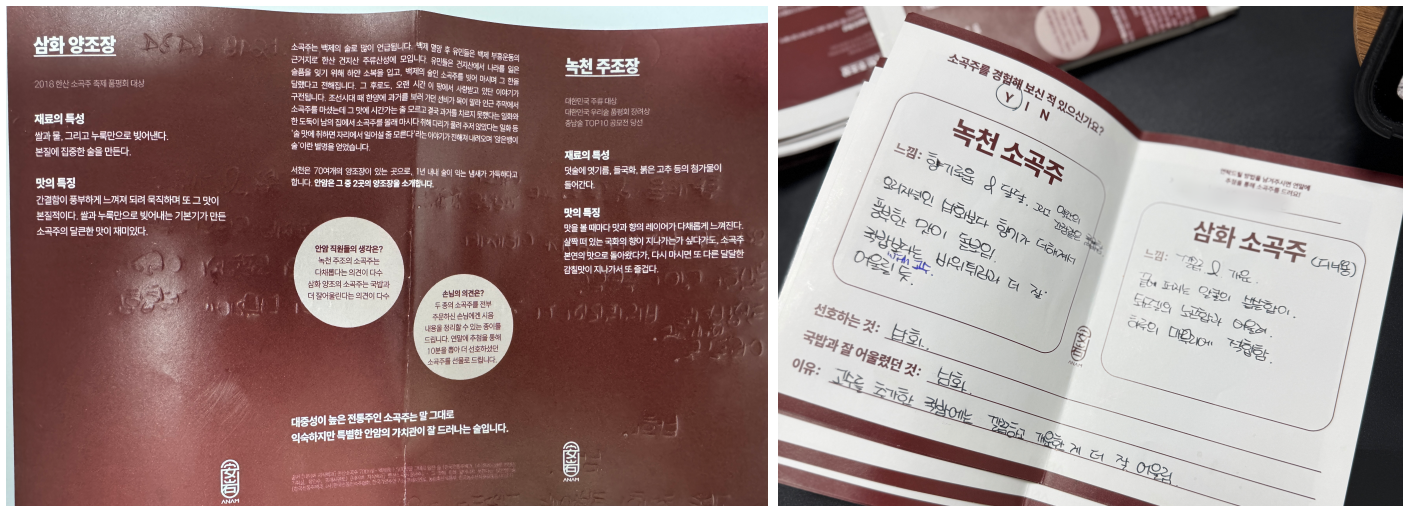 삼화 양조장
2018 한산 소곡주 축제 품평회 대상
재료의 특성
쌀과 물, 그리고 누룩만으로 빚어낸다.
본질에 집중한 술을 만든다.
맛의 특징
간결함이 풍부하게 느껴져 되려 묵직하며 또 그 맛이
본질적이다. 쌀과 누룩만으로 빚어내는 기본기가 만든
소곡주의 달큰한 맛이 재미있다.
소곡주는 백제의 술로 많이 언급됩니다. 백제 멸망 후 유민들은 백제 부흥운동의
근거지로 한산 건지산 주류산성에 모입니다. 유민들은 건지산에서 나라를 잃은
슬픔을 잊기 위해 하얀 소복을 입고, 백제의 술인 소곡주를 빚어 마시며 그 한을
달랬다고 전해집니다. 그 후로도, 오랜 시간 이 땅에서 사랑받고 있단 이야기가
구전됩니다. 조선시대 때 한양에 과거를 보러 가던 선비가 목이 말라 인근 주막에서
소곡주를 마셨는데 그 맛에 시간가는 줄 모르고 결국 과거를 치르지 못했다는 일화와
한 도둑이 남의 집에서 소곡주를 몰래 마시다 취해 다리가 풀려 주저 앉았다는 일화 등
'술 맛에 취하면 자리에서 일어설 줄 모른다'라는 이야기가 전해져 내려오며 '앉은뱅이
술'이란 별명을 얻었습니다.
서천은 70여개의 양조장이 있는 곳으로, 1년 내내 술이 익는 냄새가 가득하다고
합니다. 안암은 그 중 2곳의 양조장을 소개합니다.
안암 직원들의 생각은?
녹천 주조의 소곡주는
다채롭다는 의견이 다수
삼화 양조의 소곡주는 국밥과
더 잘어울린다는 의견이 다수
손님의 의견은?
두 종의 소곡주를 전부
주문하신 손님에겐 시음
내용을 정리할 수 있는 종이를
드립니다. 연말에 추첨을 통해
10분을 뽑아 더 선호하셨던
소곡주를 선물로 드립니다.
대중성이 높은 전통주인 소곡주는 말 그대로
익숙하지만 특별한 안암의 가치관이 잘 드러나는 술입니다.
ANAM
녹천 주조장
대한민국 주류 대상
대한민국 우리술 품평회 장려상
충남술 TOP10 공모전 당선
재료의 특성
덧술에 엿기름, 들국화, 붉은 고추 등의 첨가물이
들어간다.
맛의 특징
맛을 볼 때마다 맛과 향의 레이어가 다채롭게 느껴진다.
살짝 떠 있는 국화의 향이 지나가는가 싶다가도, 소곡주
본연의 맛으로 돌아왔다가, 다시 마시면 또 다른 달달한
감칠맛이 지나가서 또 즐겁다.
ANAM
소곡주를 경험해 보신 적 있으신가요?
Y I N
녹천 소곡주
느낌: 향기로움 & 달달.
오리지널인 삼화보다 향기가 더해져서
풍부한 맛이 돋보임.
국밥보다는 바위튀리와 더 잘
어울릴 듯.
연락드릴 방법을 남겨주시면 연말에
추첨을 통해 소곡주를 드려요!
삼화 소곡주
느낌: 깔끔 & 개운.
끝에 퍼지는 알콜의
어울려.
하루의 마무리에 적합함.
선호하는 것: 삼화.
국밥과 잘 어울렸던 것: 삼화.
이유: 고수를 추가한 국밥에는 깔끔하고 개운한 게 더 잘 어울림
ANAM